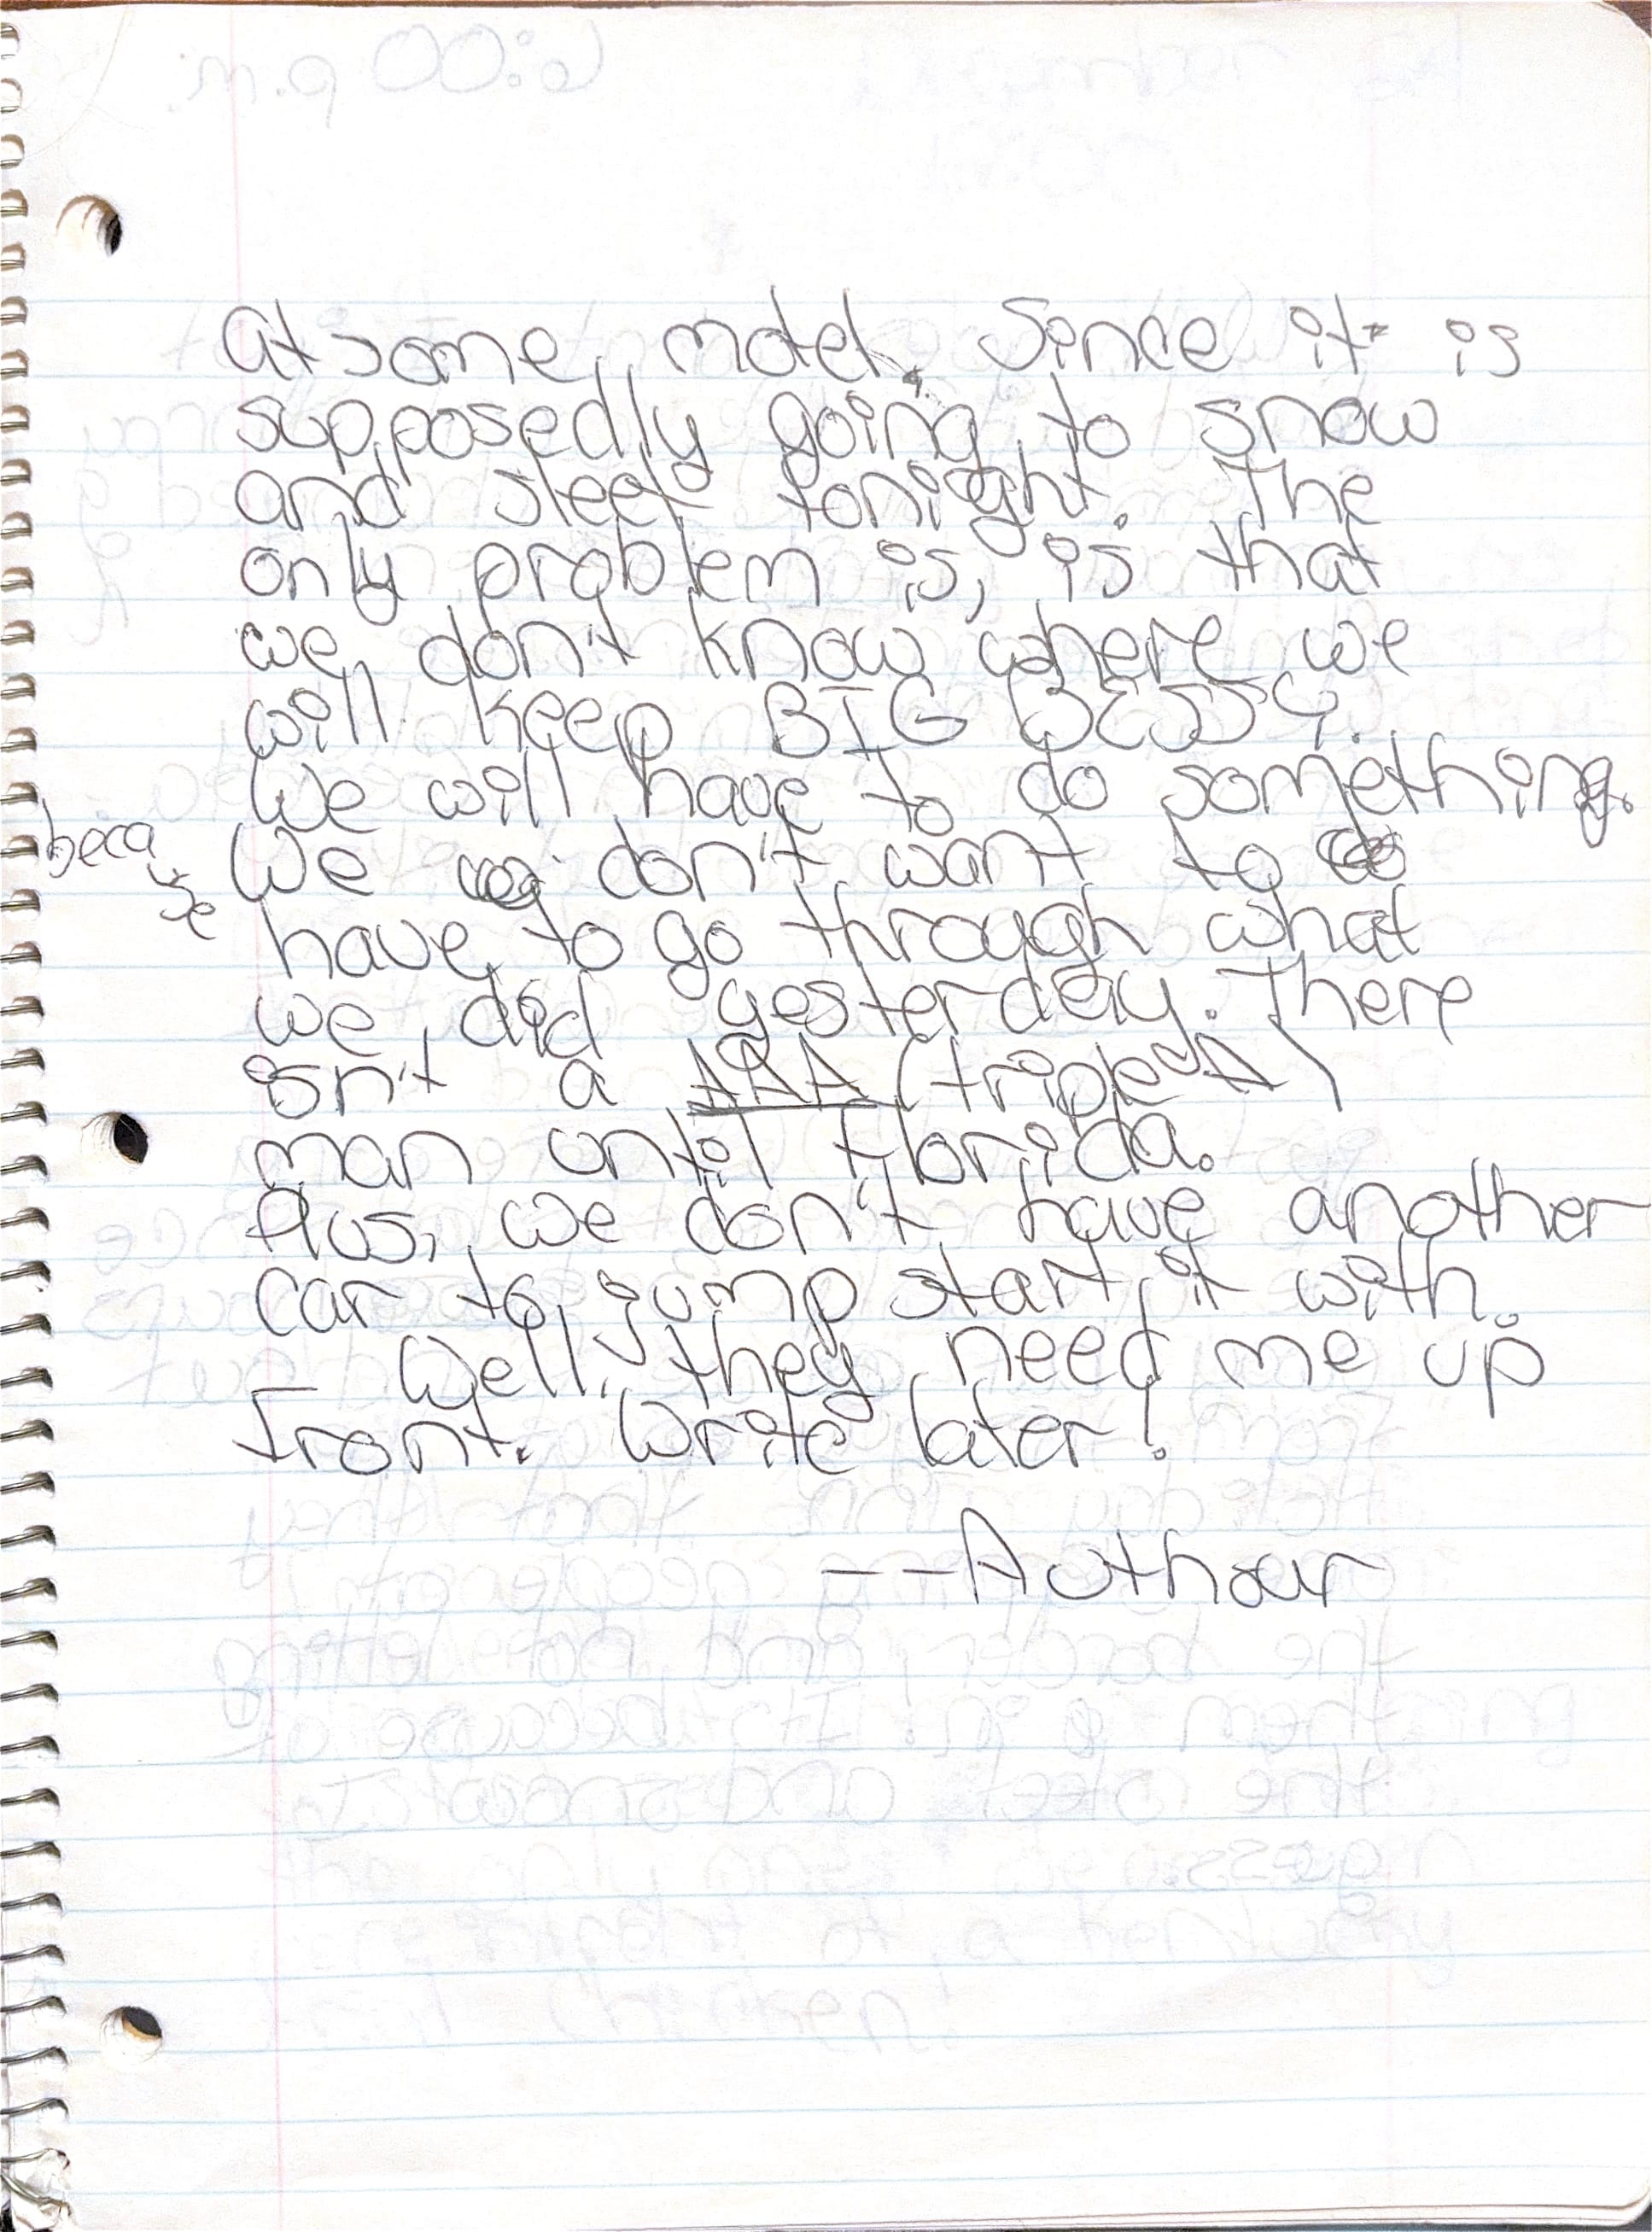 at some motel. Since it is
supposedly going to snow
and sleet tonight. The
only problem is, is that
we don't know where we
will keep BIG BESSY.
We will have to do something.
because We don't want to
have to go through what
we did yesterday. There
isn't a AAA (triple "A")
man until Florida.
Plus, we don't have another
car to jump start it with.
Well, they need me up
front. Write later!
--Authour